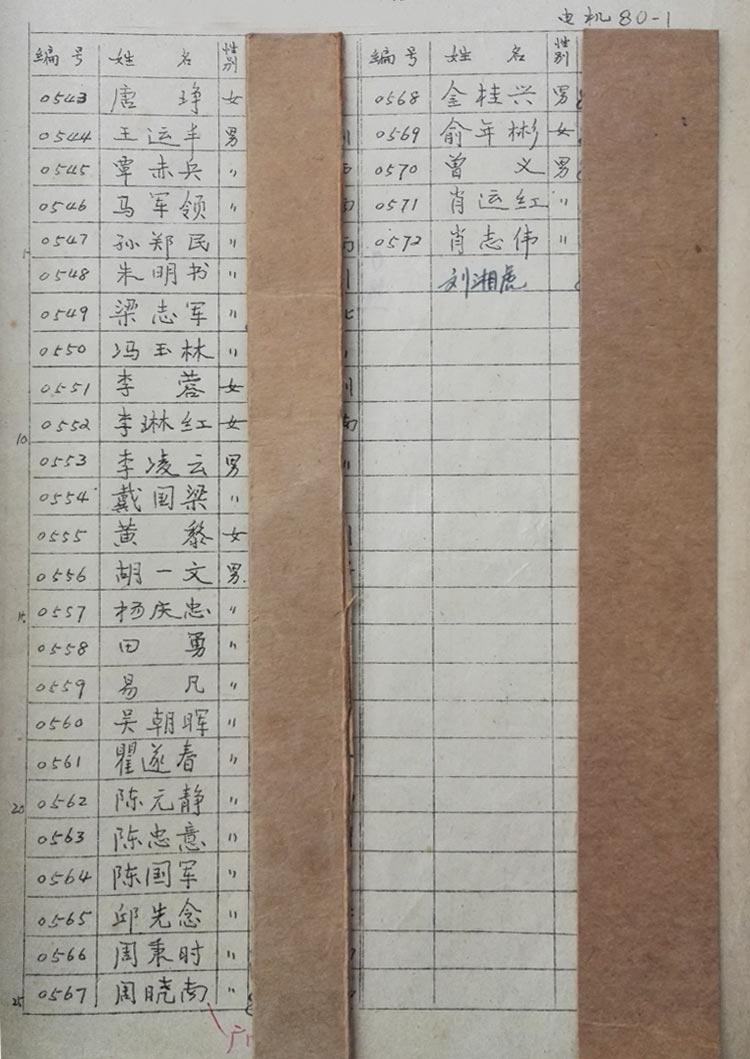 电机80-1
编号 姓名 性别
0543 唐琤 女
0544 王运丰 男
0545 覃赤兵 〃
0546 马军领 〃
5 0547 孙郑民 〃
0548 朱明书 〃
0549 梁志军 〃
0550 冯玉林 〃
0551 李蓉 女
10 0552 李琳红 女
0553 李凌云 男
0554 戴国梁 〃
0555 黄黎 女
0556 胡一文 男
15 0557 杨庆忠 〃
0558 田勇 〃
0559 易凡 〃
0560 吴朝晖 〃
0561 瞿遂春 〃
20 0562 陈元静 〃
0563 陈忠意 〃
0564 陈国军 〃
0565 邱先念 〃
0566 周秉时 〃
25 0567 周晓南 〃
广
编号 姓名 性别
0568 金桂兴 男
0569 俞年彬 女
0570 曾义 男
0571 肖运红 〃
0572 肖志伟 〃
刘湘虎